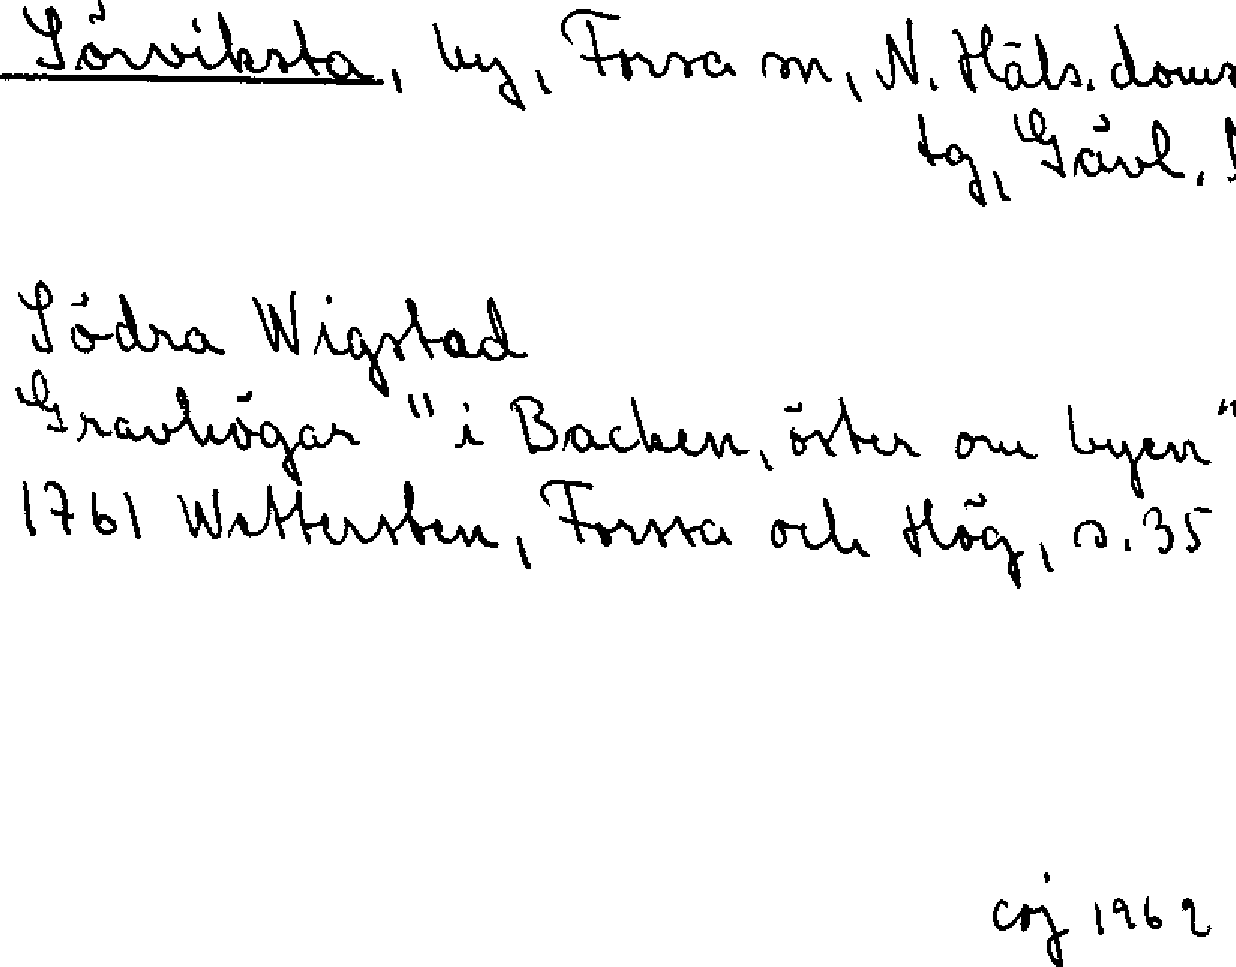 Sörviksta, by, Forsa sn, N. Häls. doms
tg, Gävl. l
Södra Wigstad
Gravhögar "i Backen, öster om byen"
1761 Wettersten, Forssa och Hög, s. 35
coj 1962